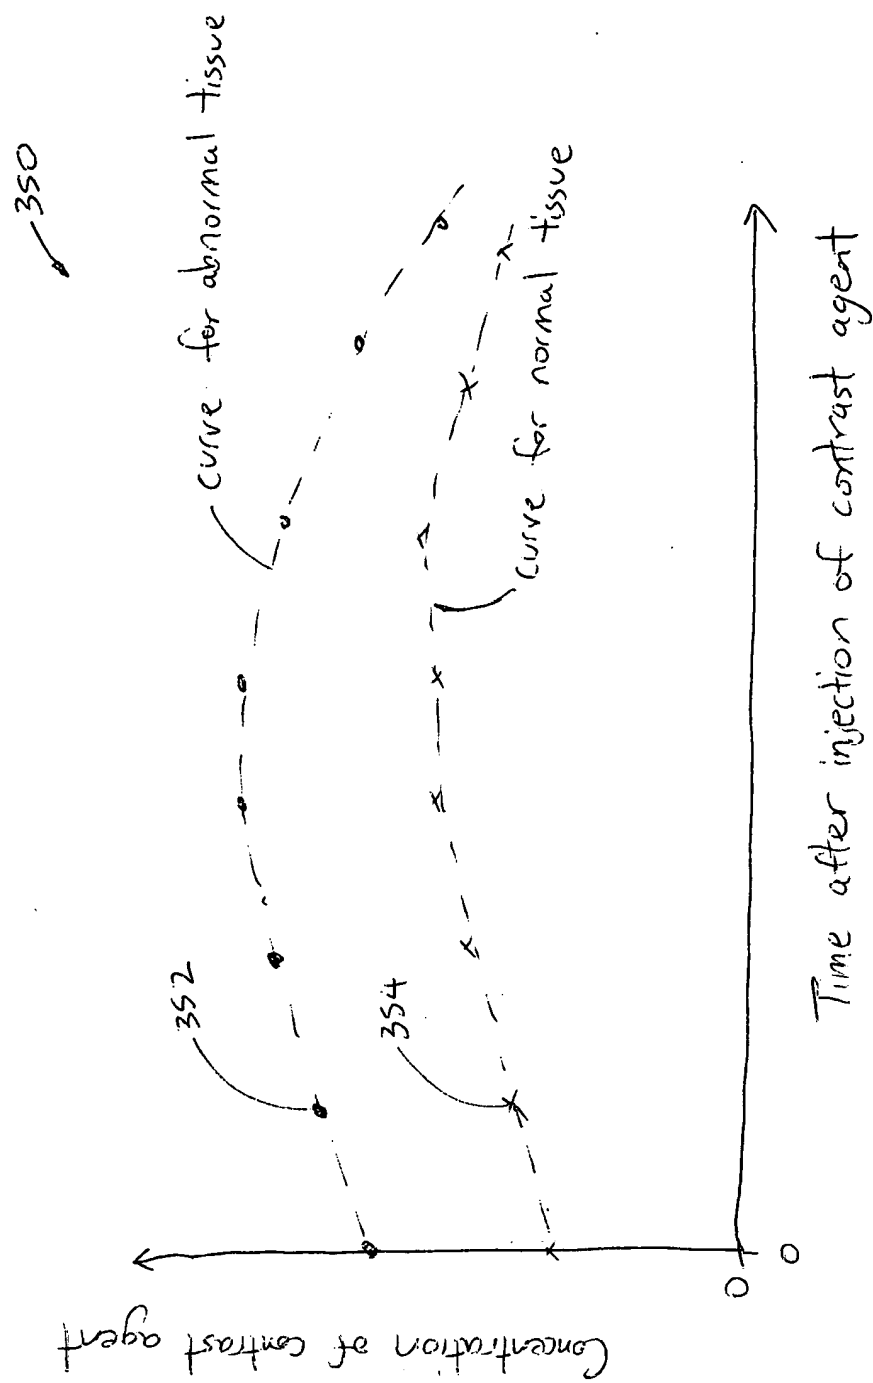 350
curve for abnormal tissue
352
354
curve for normal tissue
Concentration of contrast agent
0
0
Time after injection of contrast agent